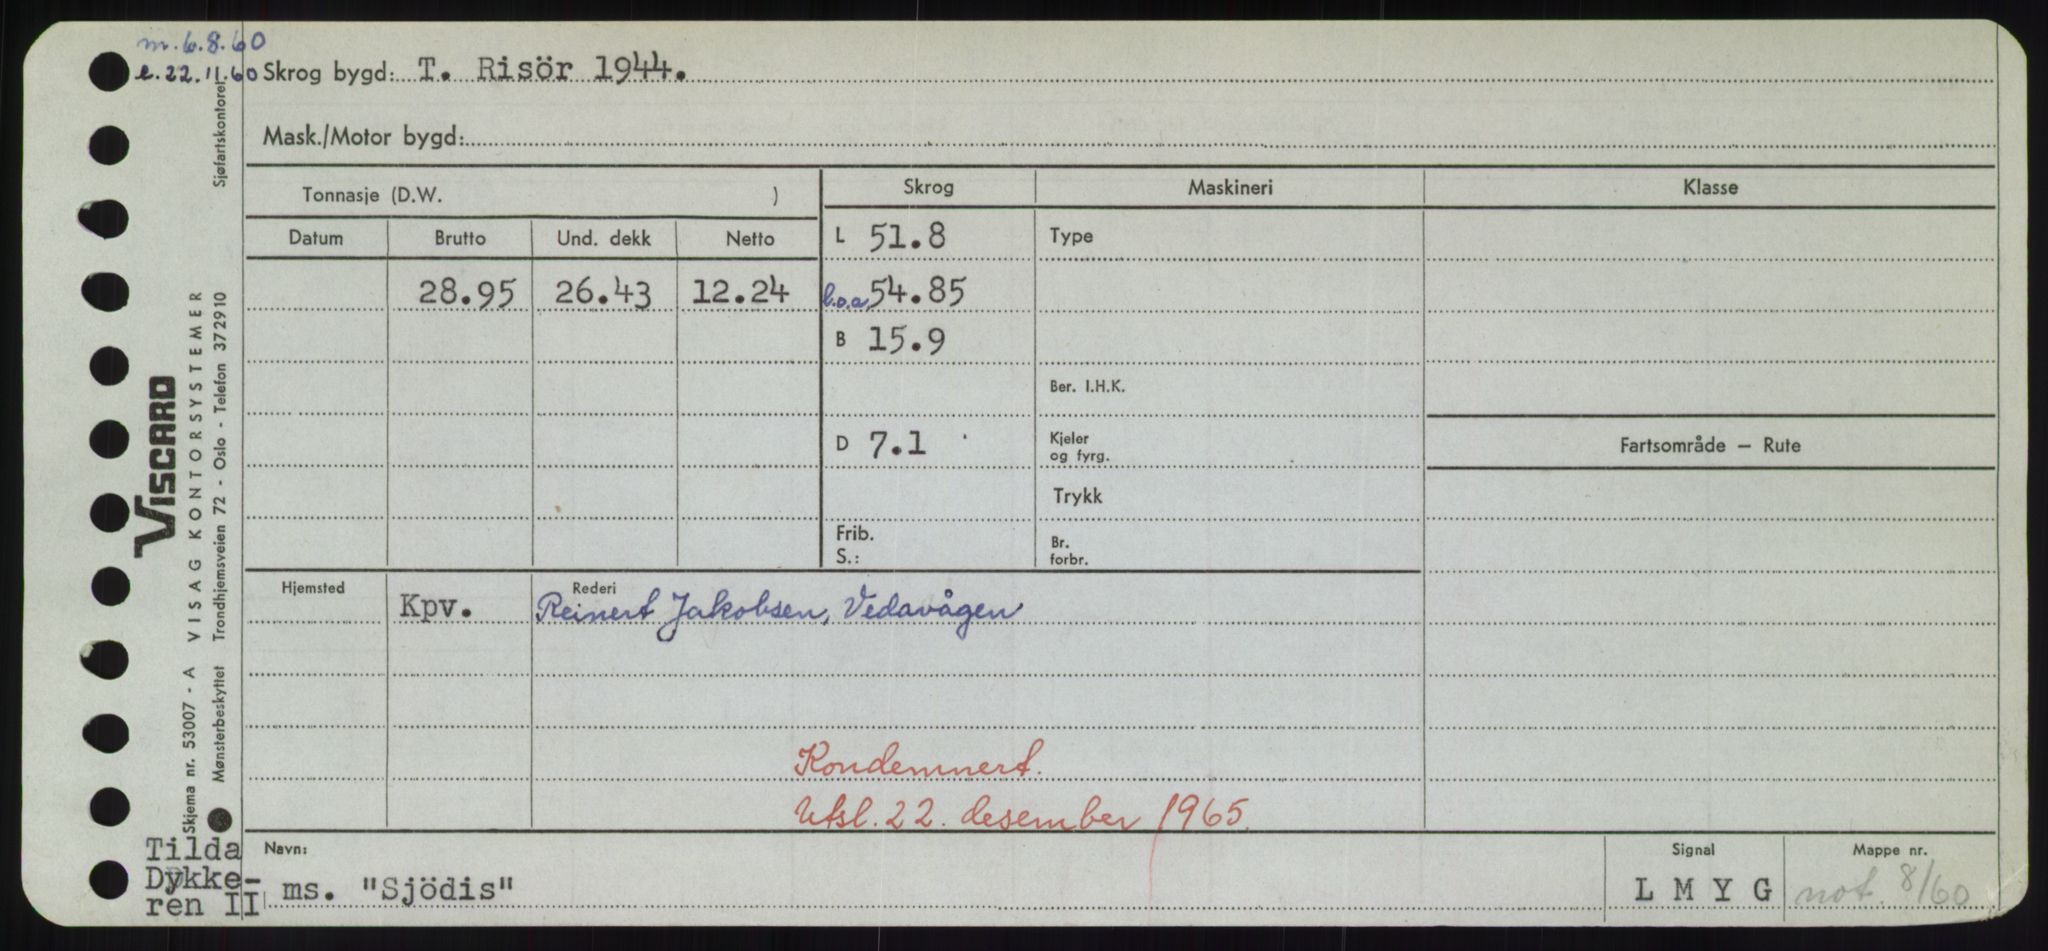 m. 6.8.60
e. 22.11.60 Skrog bygd: T. Risör 1944.
Mask./Motor bygd:
Tonnasje (D.W. )
Skrog Maskineri Klasse
Datum Brutto Und. dekk Netto
L 51.8 Type
28.95 26.43 12.24 l.o.a. 54.85
B 15.9
Ber. I.H.K.
D 7.1 Kjeler
og fyrg.
Fartsområde — Rute
Trykk
Frib.
S.:
Br.
forbr.
Hjemsted Rederi
Kpv. Reinert Jakobsen, Vedavågen
Kondemnert.
Utsl. 22. desember 1965.
Tilda
Dykke-
ren II
Navn: Signal Mappe nr.
ms. "Sjödis" L M Y G not. 8/60
VISCARD
VISAG KONTORSYSTEMER
Skjema nr. 53007 - A
Mønsterbeskyttet Trondhjemsveien 72 - Oslo - Telefon 372910 Sjøfartskontoret